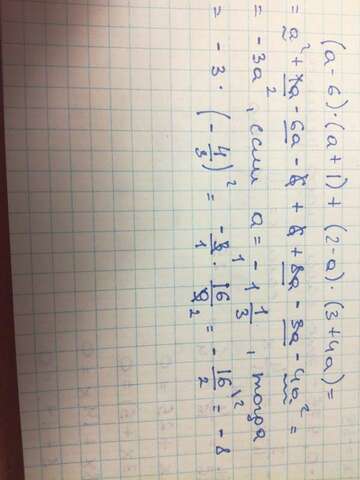 (a-6)·(a+1)+(2-a)·(3+4a)=
=a²+1a-6a-6+6+8a-3a-4a²=
=-3a², если a=-1 1/3, тогда
=-3·(-4/3)²=-3/1·16/9=-16/2=-8.